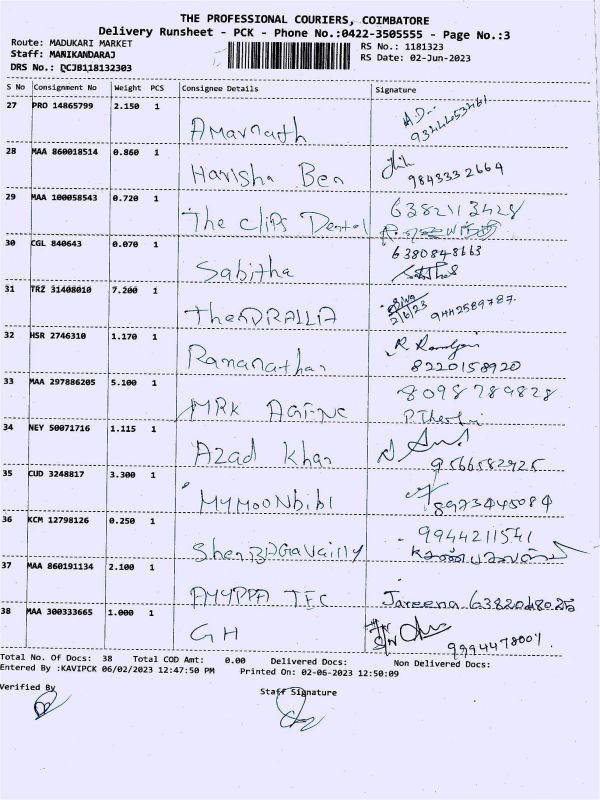 THE PROFESSIONAL COURIERS, COIMBATORE
Delivery Runsheet - PCK - Phone No.:0422-3505555 - Page No.:3
Route: MADUKARI MARKET
RS No.: 1181323
Staff: MANIKANDARAJ
RS Date: 02-Jun-2023
DRS No.: DCJB118132303
S No Consignment No Weight PCS Consignee Details Signature
27 PRO 14865799 2.150 1 Amarnath A.D
28 MAA 860018514 0.860 1 Harisha Ben 9843332664
29 MAA 100058543 0.720 1 The Clips Dental 6382113428
30 CGL 840643 0.070 1 Sabitha 6380848663
31 TRZ 31408010 7.200 1 2/6/23 9442589787.
32 HSR 2746310 1.170 1 Ramanathan 8220158920
33 MAA 297886205 5.100 1 MRK 8098789828
34 NEY 50071716 1.115 1 Azad Khan 9566582925
35 CUD 3248817 3.300 1 MYMOONbibi 8973445084
36 KCM 12798126 0.250 1 9944211541
37 MAA 860191134 2.100 1 Jareena
38 MAA 300333665 1.000 1 GH
Total No. Of Docs: 38 Total COD Amt: 0.00 Delivered Docs: Non Delivered Docs:
Entered By :KAVIPCK 06/02/2023 12:47:50 PM Printed On: 02-06-2023 12:50:09
Verified By Staff Signature